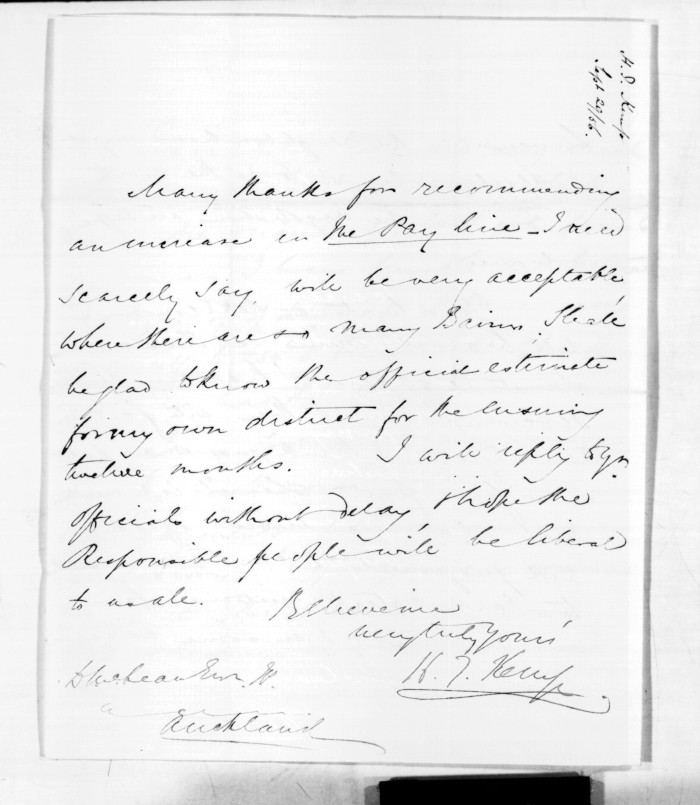 H. T. Kemp
Sept 20/56.
Many thanks for recommending
an increase in the Pay line _ I need
scarcely say, will be very acceptable
where there are so many Bairns, I shall
be glad to know the official estimate
for my own district for the ensuing
twelve months. I will reply to yr.
officials without delay, I hope the
Responsible people will be liberal
to us all. Believe me
very truly yours
H. T. Kemp
D McLean Esqr.
Auckland